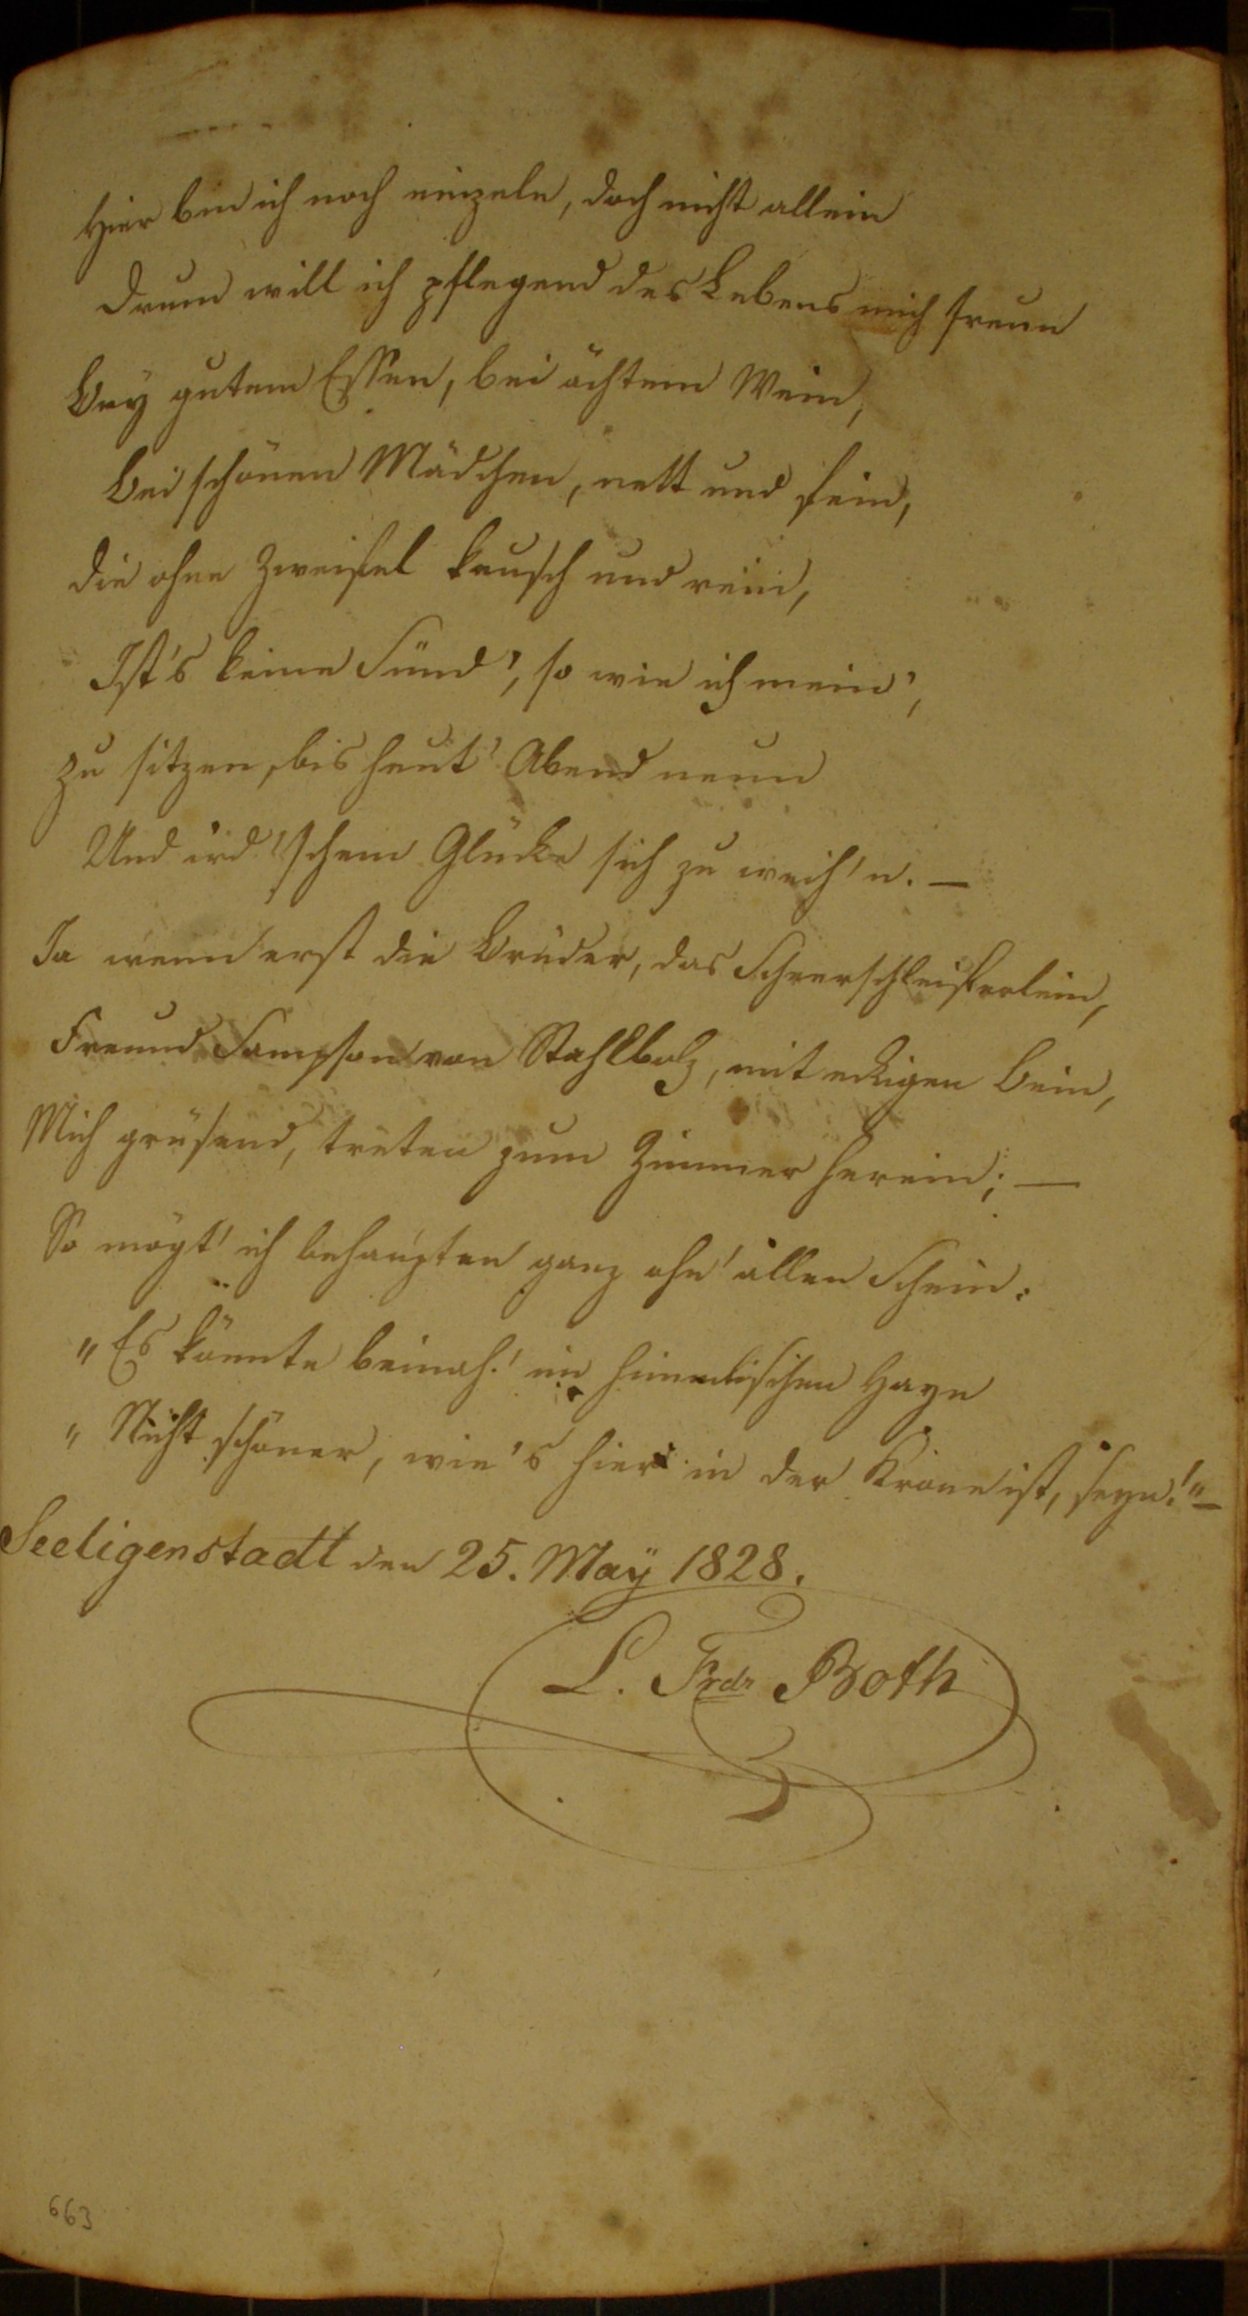 Hier bin ich noch einzeln, doch nicht allein
Drum will ich pflegend des Lebens mich freun
Bey gutem Essen, bei ächtem Wein,
Bei schönen Mädchen, nett und fein,
die ohne Zweifel keusch und rein,
Ist's keine Sünd', so wie ich mein',
zu sitzen, bis heut' Abend neun
Und ird'schem Glücke sich zu weih'n. —
Ja wenn erst die Brüder, das Scheerschleiferlein,
Freund Sampson von Stahlbolz, mit eckigen Bein,
Mich grüsend, treten zum Zimmer herein; —
So mögt' ich behaupten ganz ohn' allen Schein:
„Es könnte beinah' im himmlischen Hayn
„Nicht schöner, wie's hier in der Krone ist, seyn!" —
Seeligenstadt den 25. May 1828.
L. Frdr Both
663